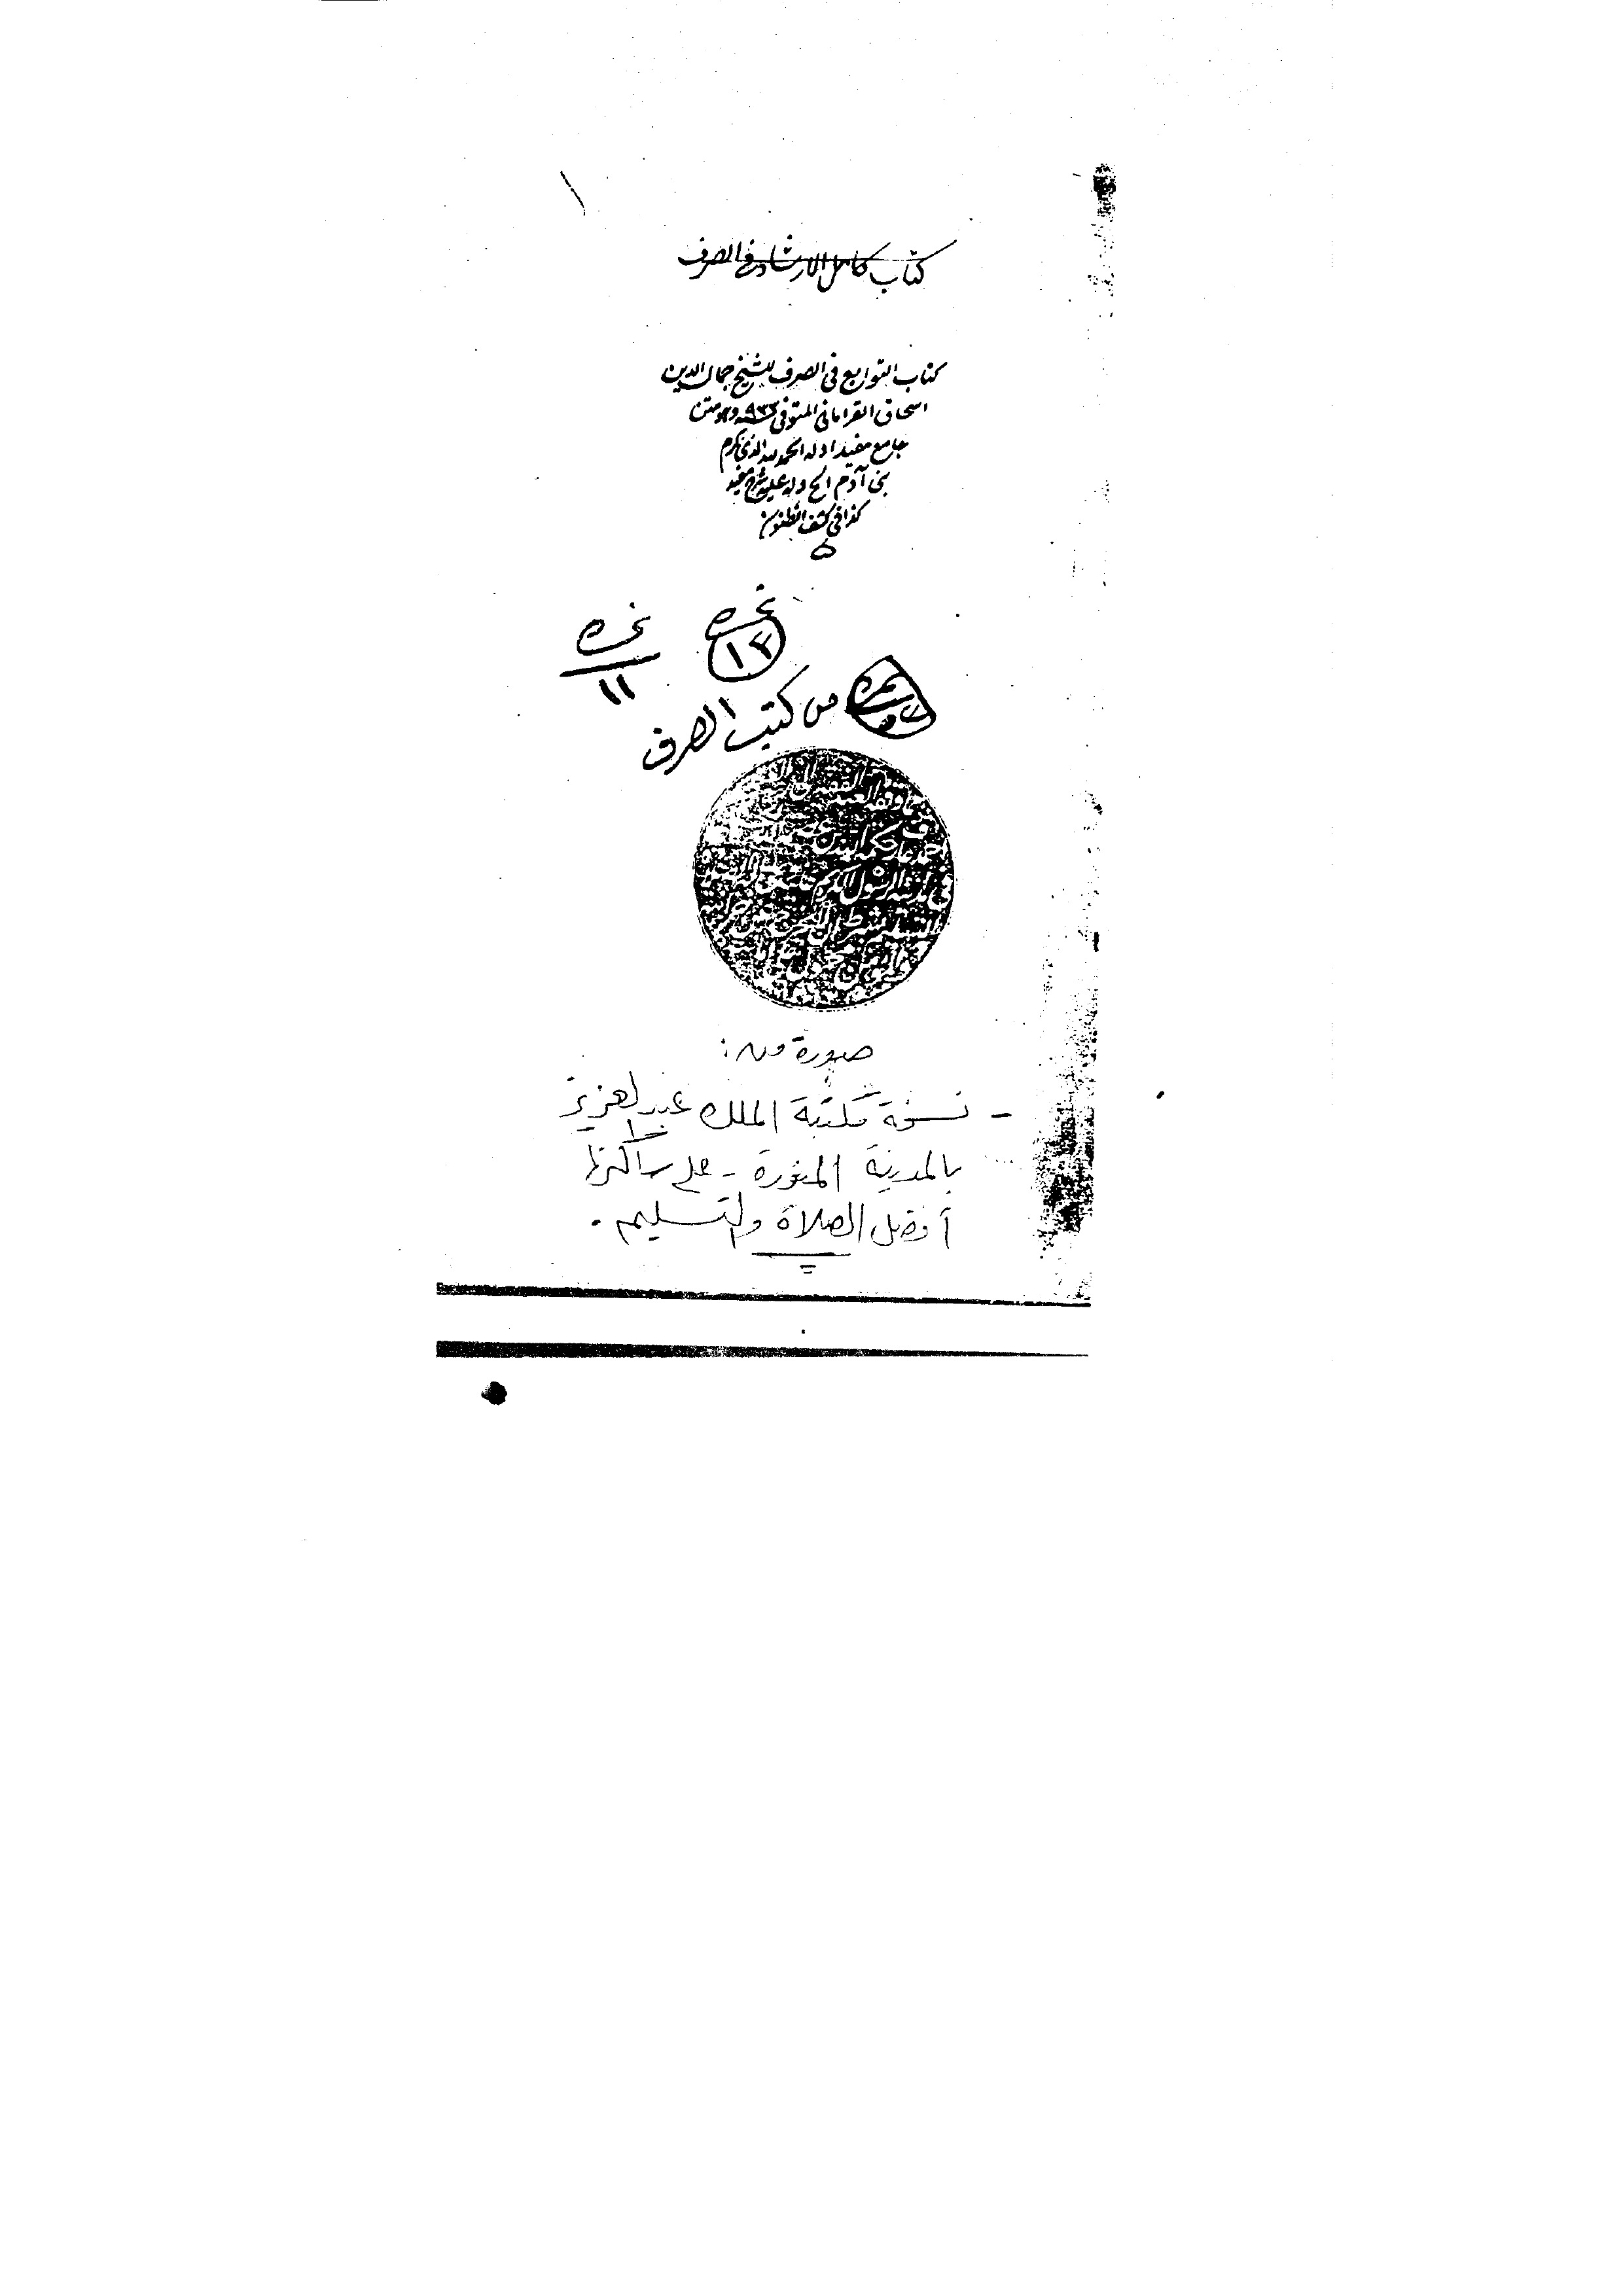 ١
كتاب كامل الارشاد في الصرف
كتاب التوابع في الصرف للشيخ جمال الدين
اسحاق القراماني المتوفى ٩٣٣ وهو متن
جامع مفيد اوله الحمد لله الذي كرم
بني آدم الخ وله عليه شرح مفيد
كذا في كشف الظنون
نمره
١٣
نمره
١١
نمره
من كتب الصرف
صورة من:
- نسخة مكتبة الملك عبد العزيز
بالمدينة المنورة - على ساكنها
أفضل الصلاة والتسليم.